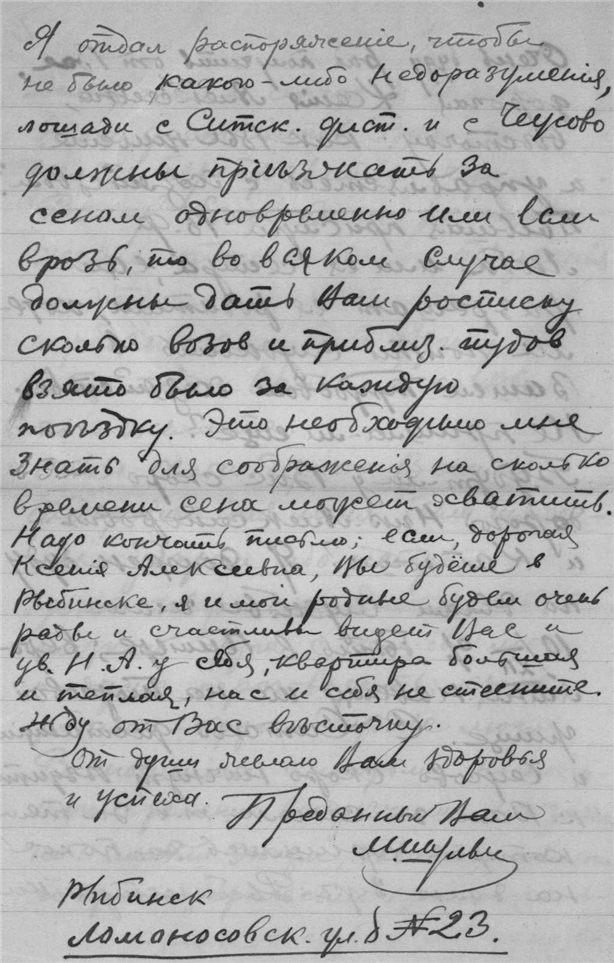 Я отдал распоряженіе, чтобы
не было какого-либо недоразуменія,
лошади с Ситск. дист. и с Чеусово
должны пріѣзжать за
сеном одновременно или если
врозь, то во всяком случае
должны дать Вам росписку
сколько возов и приблиз. пудов
взято было за каждую
поѣздку. Это необходимо мне
знать для соображенія на сколько
времени сена может хватить.
Надо кончать письмо; если, дорогая
Ксенія Алексѣевна, Вы будете в
Рыбинске, я и мои родные будем очень
рады и счастливы видеть Вас и
ув. Н. А. у себя, квартира большая
и теплая, нас и себя не стесните.
Жду от Вас вѣсточку.
От души желаю Вам здоровья
и успеха.
Преданный Вам
Рыбинск
Ломоносовск. ул. д № 23.